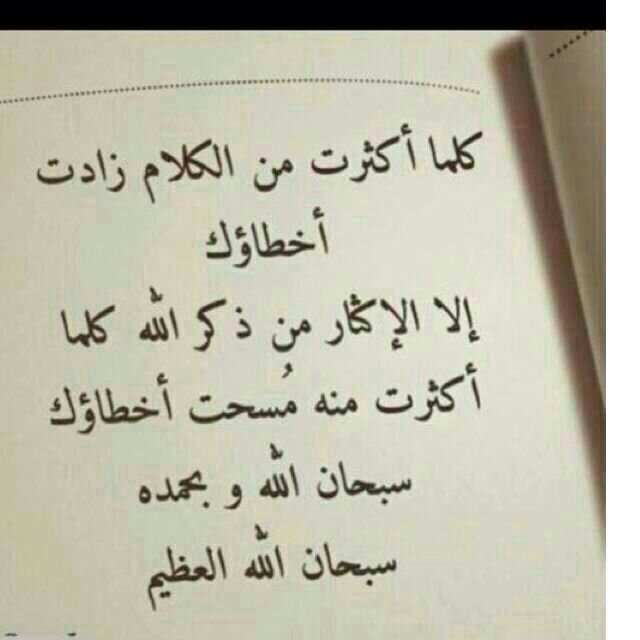 كلما أكثرت من الكلام زادت
أخطاؤك
إلا الإكثار من ذكر الله كلما
أكثرت منه مُسحت أخطاؤك
سبحان الله و بحمده
سبحان الله العظيم